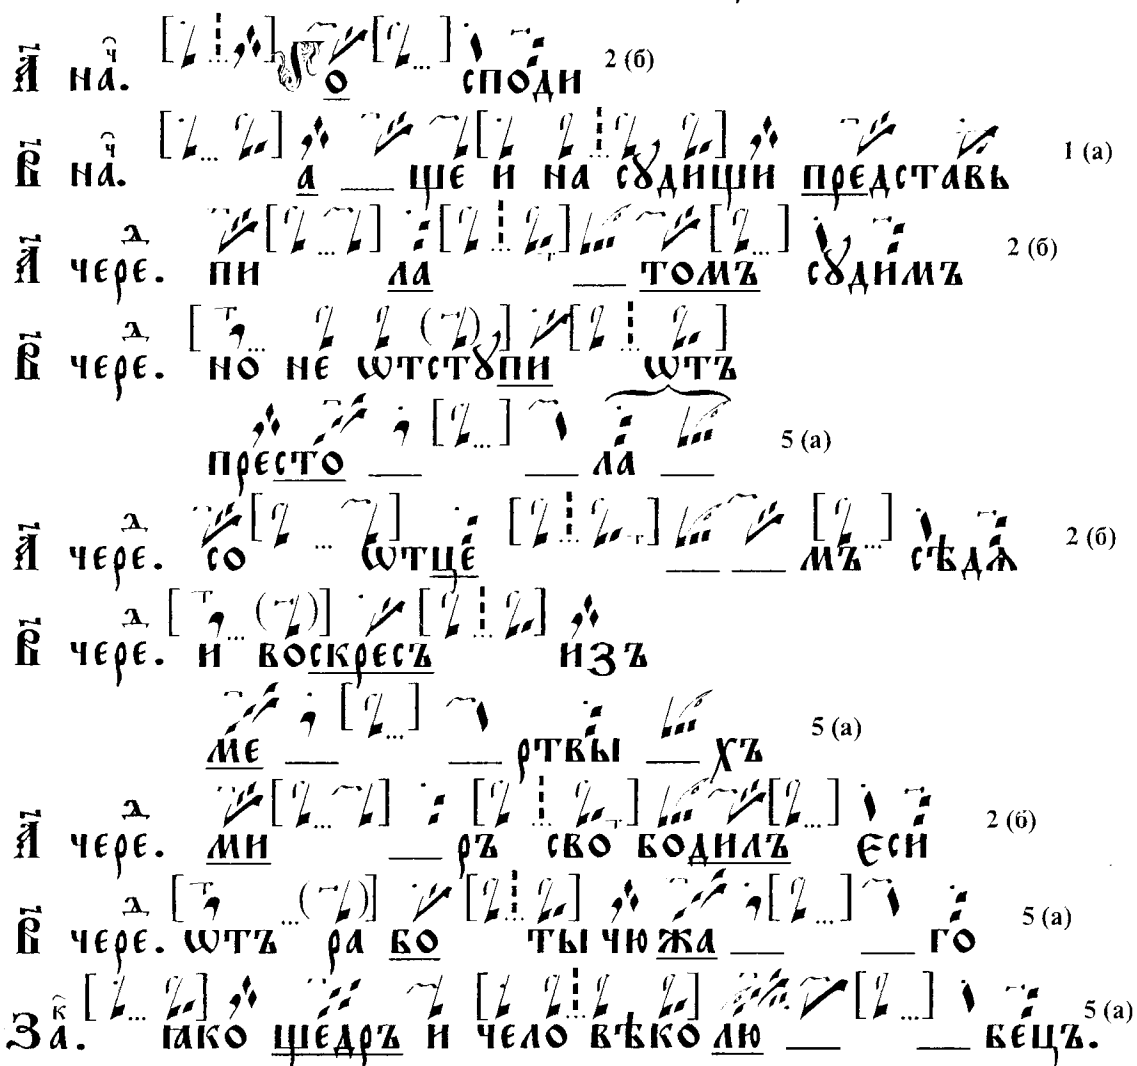 А҃ на҃ч. Го споди 2 (б)
В҃ на҃ч. а ще и на сꙋдищи представь 1 (а)
А҃ чередⷣ. пи ла томъ сꙋдимъ 2 (б)
В҃ чередⷣ. но не ѿтстꙋпи ѡтъ
престо ла 5 (а)
А҃ чередⷣ. со ѡтце мъ сѣдѧ 2 (б)
В҃ чередⷣ. и воскресъ изъ
ме ртвы хъ 5 (а)
А҃ чередⷣ. ми ръ сво бодилъ еси 2 (б)
В҃ чередⷣ. ѡтъ ра бо ты чюжа го 5 (а)
За҃к. ꙗко щедръ и чело вѣко лю бецъ. 5 (а)